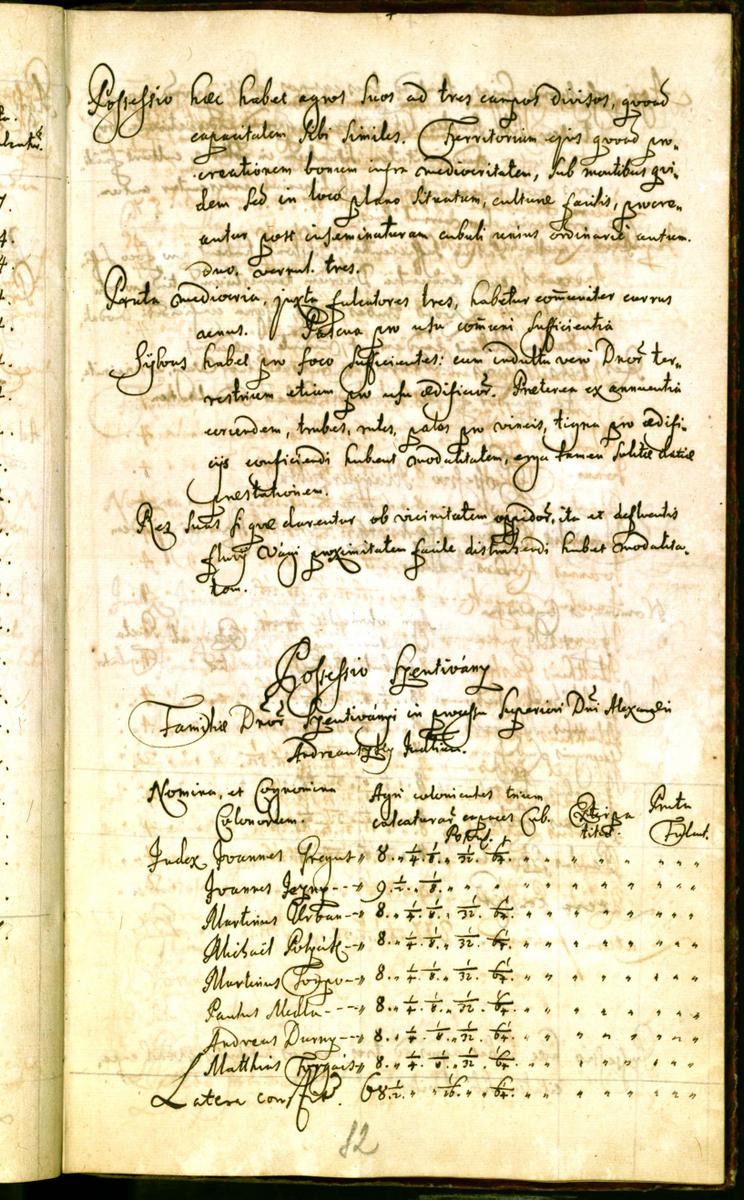 Possessio hæc habet agros suos ad tres campos divisos, quoad
capacitatem sibi similes. Territorium ejus quoad pro-
creationem bonum infra mediocritatem, sub montibus qui-
dem sed in loco plano situatum, culturæ facilis, procre-
antur post inseminaturam cubuli unius ordinarie autum.
duo. vernal. tres.
Prata mediocria, juxta falcatores tres, habetur com̄uniter currus
unus. Pascua pro usu com̄uni sufficientia
Sylvas habet pro foco sufficientes: cum indultu vero Dnor̄ ter-
restrium etiam pro usu ædificior̄. Preterea ex annuentia
eorundem, trabes, rates, palos pro vineis, tigna pro ædifi-
cijs conficiendi habent modalitatem, erga tamen solitæ
præstationem.
Res suas si quæ darentur ob vicinitatem oppidor̄, ita et defluentis
fluvij Vági proximitatem facile distrahendi habet modalita-
tem.
Possessio Szentivány
Familiæ Dnor̄ Szentiványi in processu Superiori Dn̄i Alexandri
Andreantzky Judlium.
Nomina, et Cognomina Agri colonicales trium Extirpa Prata
Colonorum. calcaturar̄ capaces Cub. titia. Falcat.
Posit.
Judex Joannes Pregus „ 8. „ 1/4. 1/8. „ 1/32. 1/64. „ „ „ „ „ „ „ „
Joannes Jezny --- „ 9. 1/2. „ 1/8. „ „ „ „ „ „ „ „ „ „ „
Martinus Urban -- „ 8. „ 1/4. 1/8. „ 1/32. 1/64. „ „ „ „ „ „ „ „
Michaël Polyák -- „ 8. „ 1/4. 1/8. „ 1/32. 1/64. „ „ „ „ „ „ „ „
Martinus -- „ 8. „ 1/4. 1/8. „ 1/32. 1/64. „ „ „ „ „ „ „ „
Paulus Medla ---- „ 8. „ 1/4. 1/8. „ 1/32. 1/64. „ „ „ „ „ „ „ „
Andreas Durny --- „ 8. „ 1/4. 1/8. „ 1/32. 1/64. „ „ „ „ „ „ „ „
Matthias „ 8. „ 1/4. 1/8. „ 1/32. 1/64. „ „ „ „ „ „ „ „
Latera 68 1/2. „ „ 1/16. „ „ 1/64. „ „ „ „ „ „ „ „
82